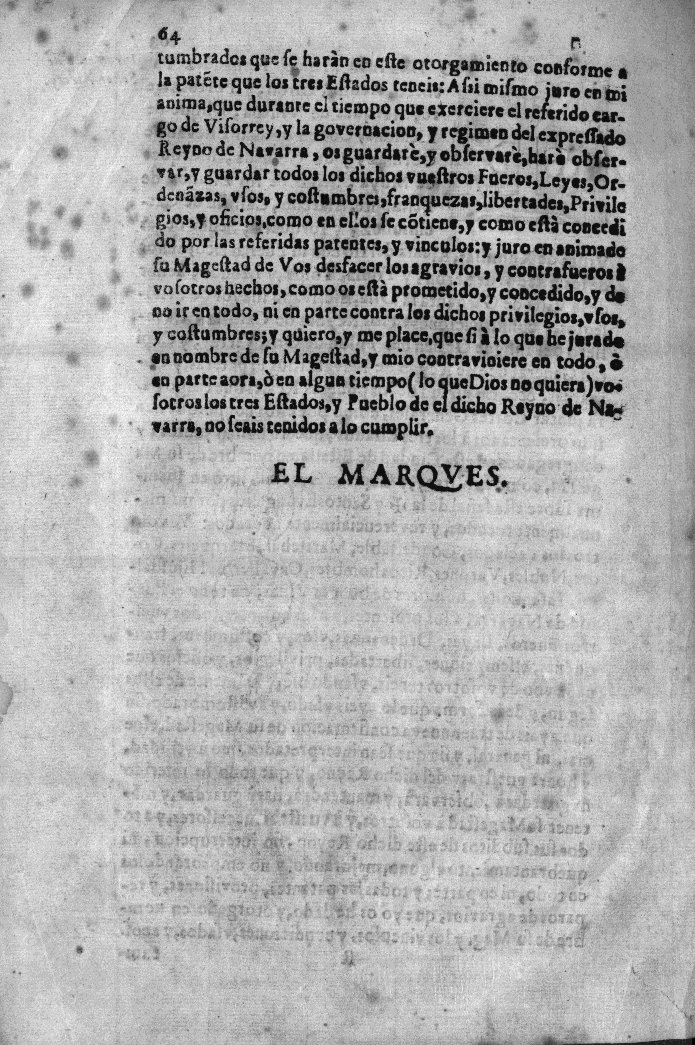 64
tumbrados que se haràn en este otorgamiento conforme a
la patẽte que los tres Estados teneis: Assi mismo juro en mi
anima, que durante el tiempo que exerciere el referido car-
go de Visorrey, y la governacion, y regimen del expressado
Reyno de Navarra, os guardarè, y observarè, harè obser-
var, y guardar todos los dichos vuestros Fueros, Leyes, Or-
denãzas, vsos, y costumbres, franquezas, libertades, Privile
gios, y oficios, como en ellos se cõtiene, y como està concedi
do por las referidas patentes, y vinculos: y juro en anima de
su Magestad de Vos desfacer los agravios, y contrafueros à
vosotros hechos, como os està prometido, y concedido, y de
no ir en todo, ni en parte contra los dichos privilegios, vsos,
y costumbres; y quiero, y me place, que si à lo que he jurado
en nombre de su Magestad, y mio contraviniere en todo, ò
en parte aora, ò en algun tiempo (lo que Dios no quiera) vo-
sotros los tres Estados, y Pueblo de el dicho Reyno de Na-
varra, no seais tenidos a lo cumplir.
EL MARQVES.